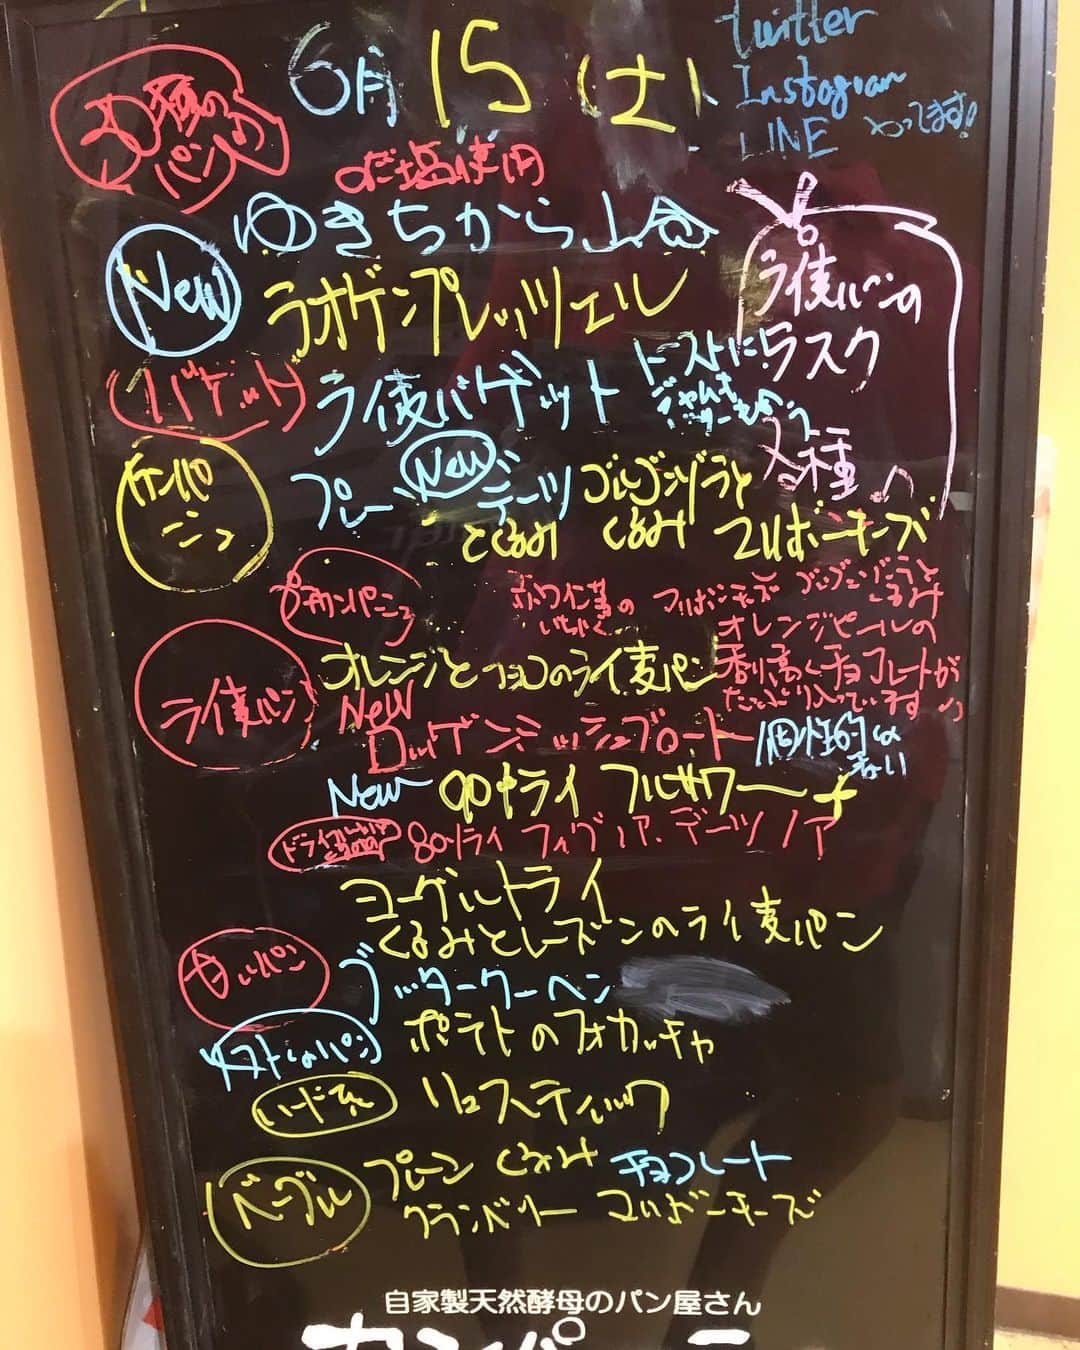 6月15(土)
twitter
Instagram
LINE やってます!
パン
のだ塩使用
ゆきちから山食
New
ラオゲンプレッツェル
ライ麦パンの
ラスク
各種
バゲット
ライ麦バゲット
トーストに!
カンパーニュ
プレーン New デーツとくるみ ゴルゴンゾーラとくるみ マルボーチーズ
プチカンパーニュ
赤ワイン煮のいちじく マルボーチーズ ゴルゴンゾーラとくるみ
ライ麦パン
オレンジとチョコのライ麦パン
オレンジピールの
香り高くチョコレートが
たっぷり入っています
New
ロッゲンミッシュブロート 個性的
New 90%ライ フルサワー
ドライフルーツ
80%ライ フィグノア・デーツノア
ヨーグルトライ
くるみとレーズンのライ麦パン
甘いパン
ブッタークーヘン
ポテトのフォカッチャ
ハード系
リュスティック
ベーグル
プレーン くるみ チョコレート
クランベリー マルボーチーズ
自家製天然酵母のパン屋さん